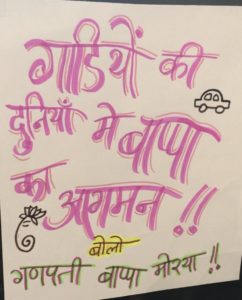 गाडियों की
दुनियाँ मे बाप्पा
का आगमन !!
बोलो
गणपती बाप्पा मोरया !!